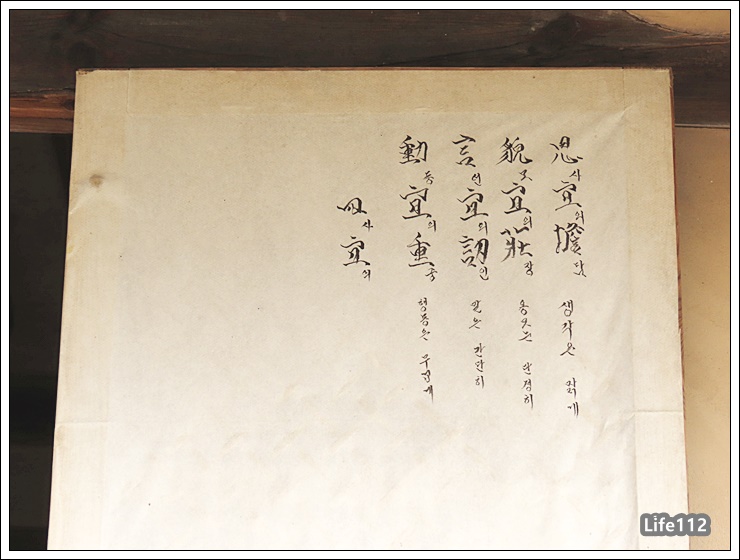 思사宜의澹담 생각은 맑게
貌모宜의莊장 용모는 단정히
言언宜의訒인 말은 간단히
動동宜의重중 행동은 무겁게
四사宜의
Life112